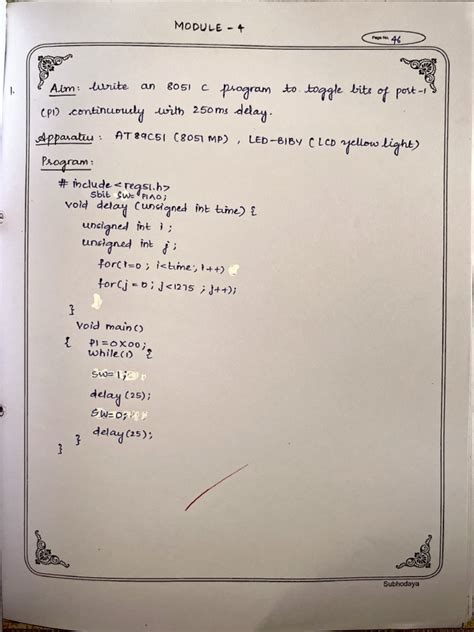 MODULE - 4
Page No. 46
1. Aim: Write an 8051 C program to toggle bits of port-1
(P1) continuously with 250ms delay.
Apparatus: AT89C51 (8051 MP), LED-BIBY (LCD yellow light)
Program:
# include <reg51.h>
Sbit SW= P1^0;
Void delay (unsigned int time) {
unsigned int i;
unsigned int j;
for(i=0; i<time; i++)
for(j=0; j<1275; j++);
}
Void main()
{ P1=0X00;
while(1) {
SW=1;
delay (25);
SW=0;
delay(25);
}
}
Subhodaya